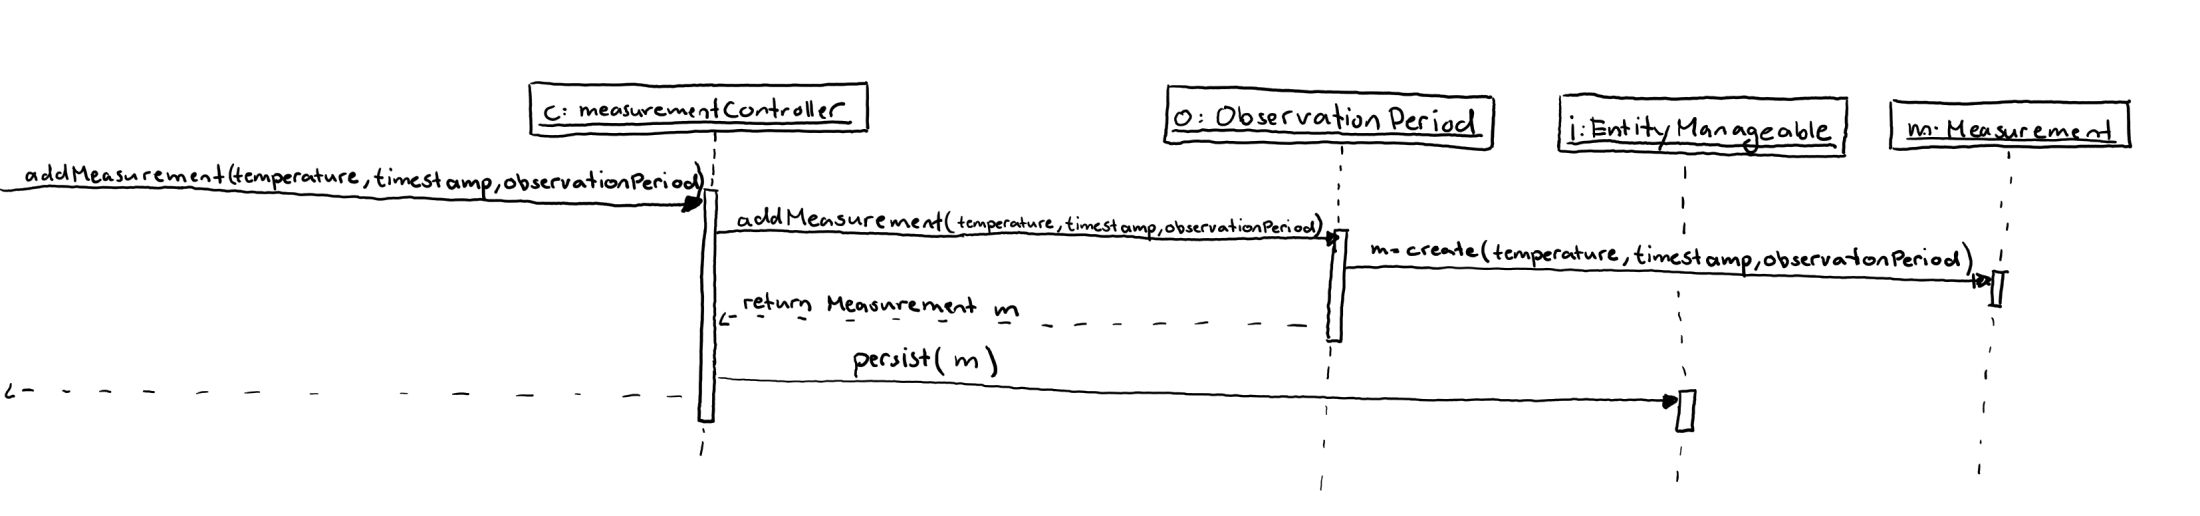 c: measurementController
o: ObservationPeriod
i: EntityManageable
m: Measurement
addMeasurement(temperature, timestamp, observationPeriod)
addMeasurement(temperature, timestamp, observationPeriod)
m= create(temperature, timestamp, observatonPeriod)
return Measurement m
persist( m )